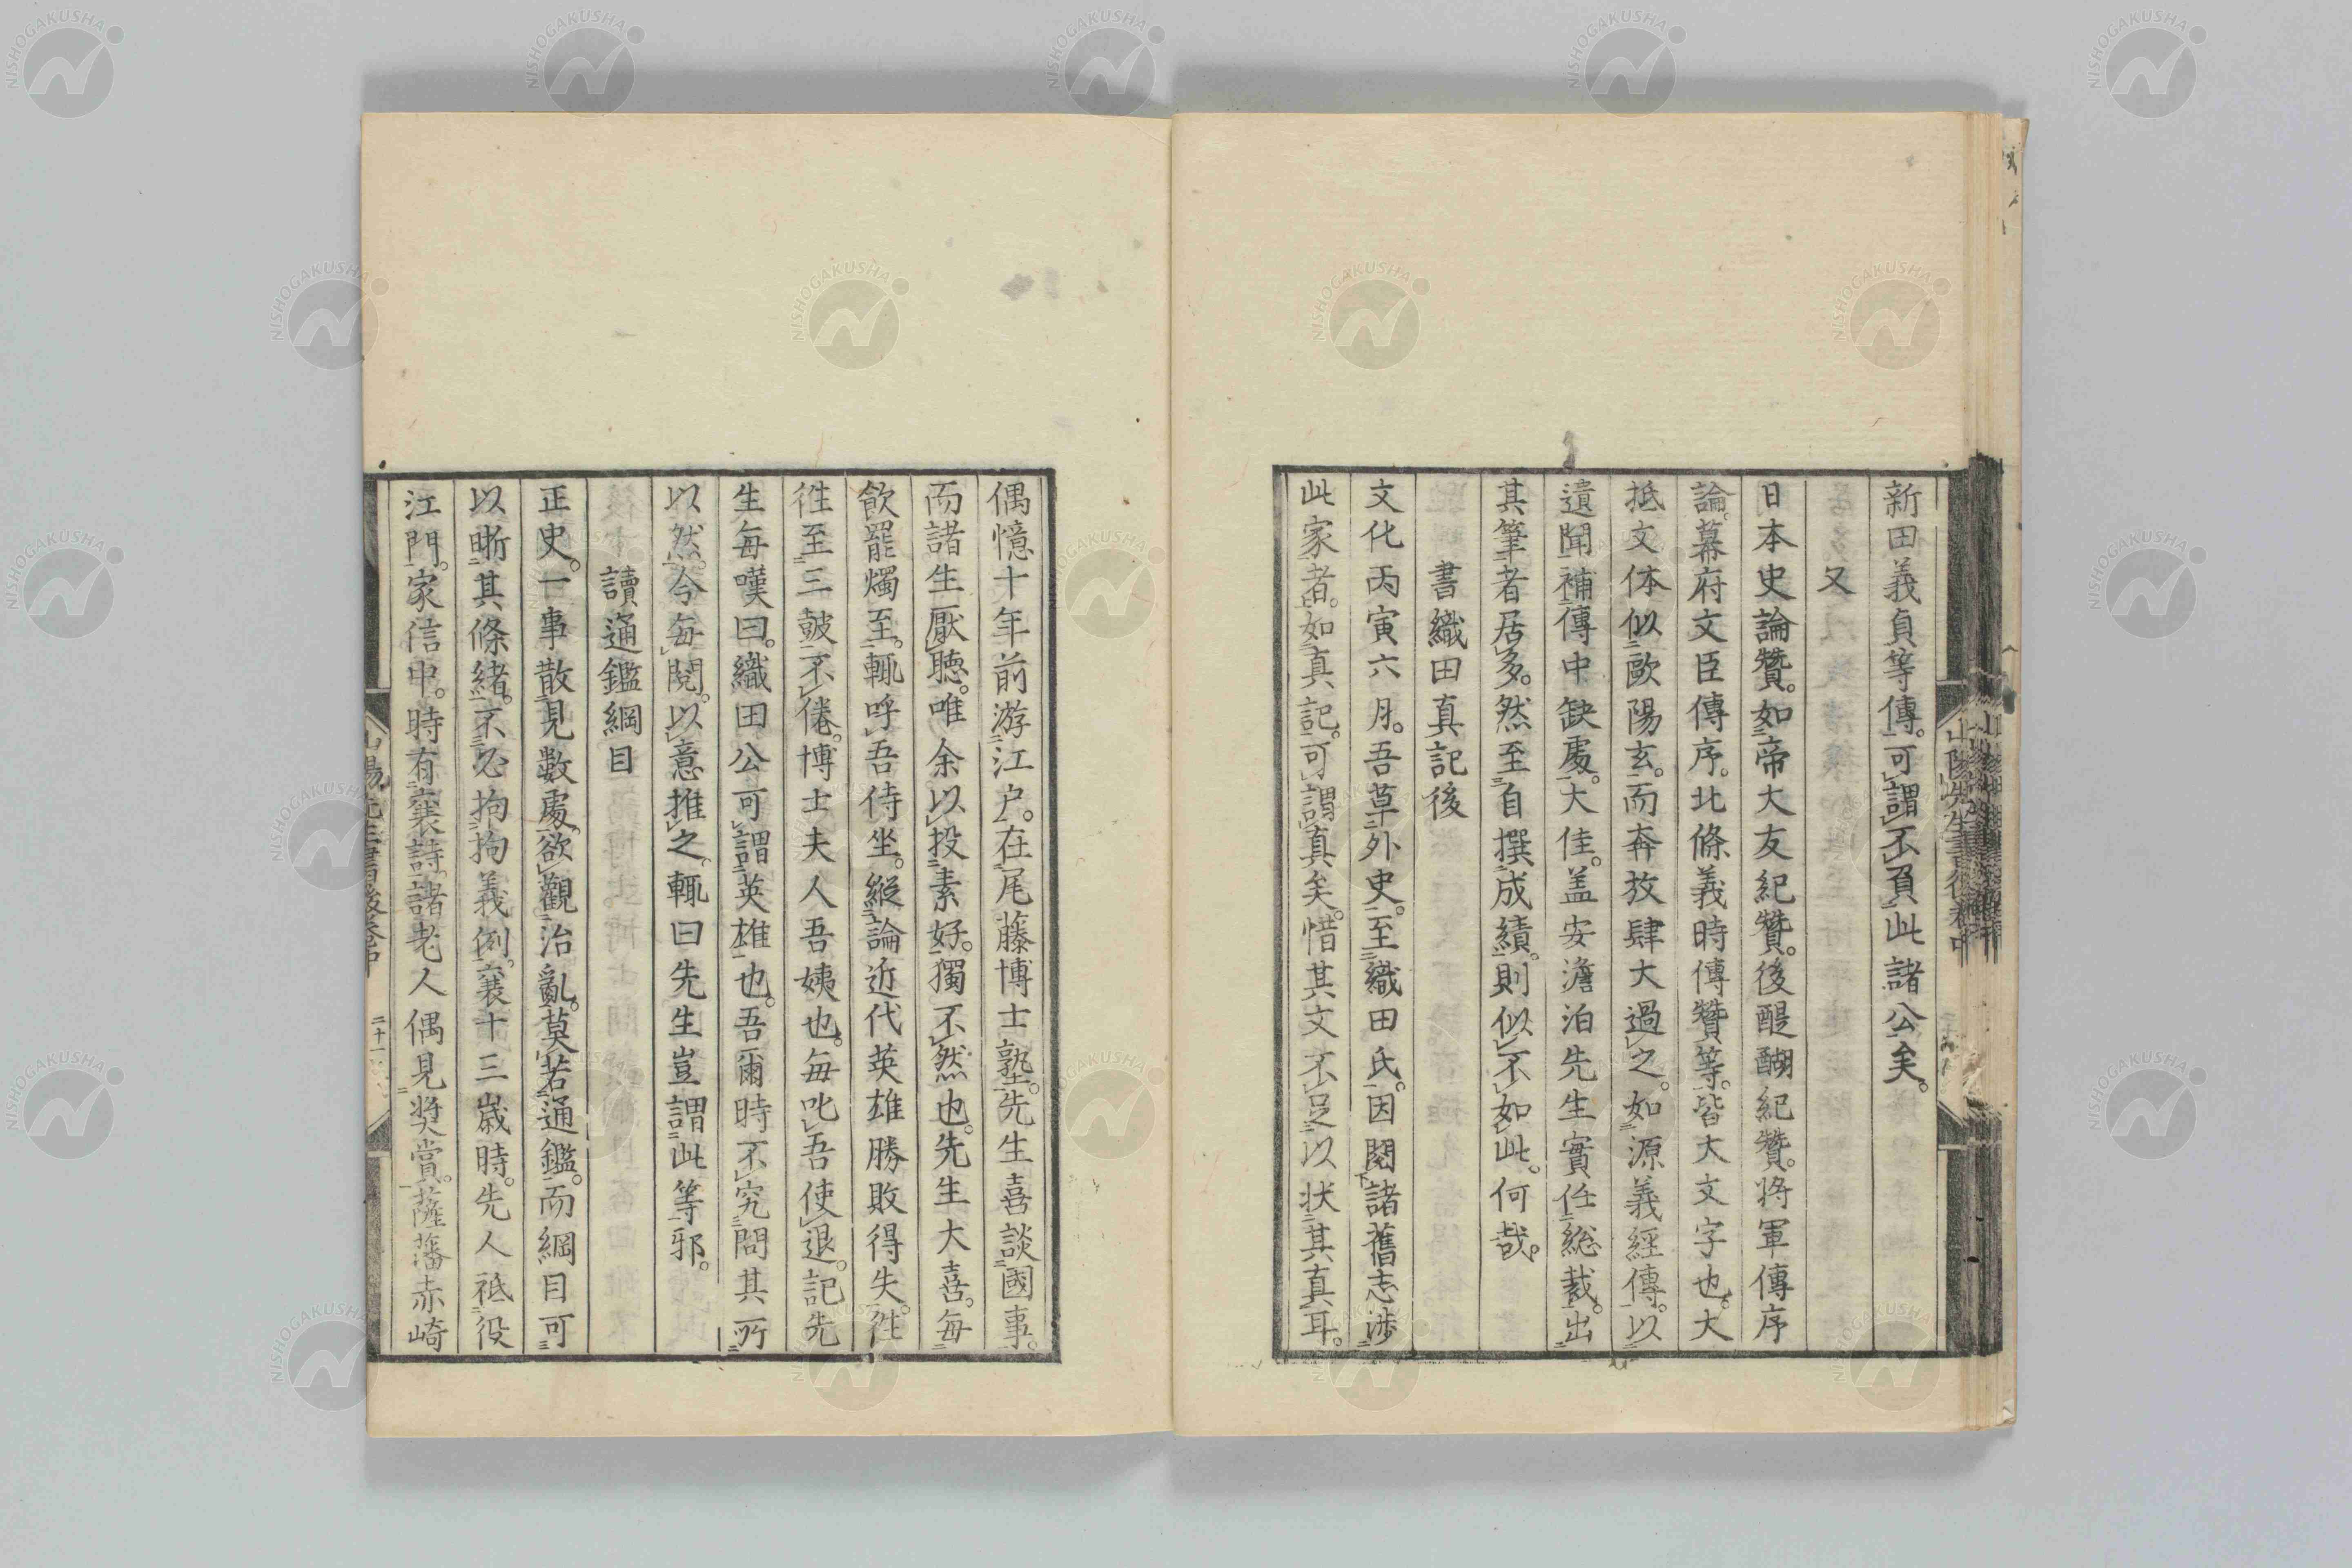 新田義貞等傳。可謂不負此諸公矣。
又
日本史論贊。如帝大友紀贊。後醍醐紀贊。將軍傳序
論。幕府文臣傳序。北條義時傳贊等。皆大文字也。大
抵文体似歐陽玄。而奔放肆大過之。如源義經傳。以
遺聞補傳中缺處。大佳。盖安澹泊先生實任総裁。出
其筆者居多。然至自撰成績。則似不如此。何哉。
書織田真記後
文化丙寅六月。吾草外史。至織田氏。因閱諸舊志涉
此家者。如真記。可謂真矣。惜其文不足以状其真耳。
偶憶十年前游江戶。在尾藤博士塾。先生喜談國事。
而諸生厭聴。唯余以投素好。獨不然也。先生大喜。每
飲罷燭至。輒呼吾侍坐。縱論近代英雄勝敗得失。往
徃至三皷不倦。博士夫人吾姨也。每叱吾使退。記先
生每嘆曰。織田公可謂英雄也。吾爾時不究問其所
以然。今每閱。以意推之。輒曰先生豈謂此等邪。
讀通鑑綱目
正史。一事散見數處。欲觀治亂。莫若通鑑。而綱目可
以晰其條緒。不必拘拘義例。襄十三歲時。先人祗役
江門。家信中。時有襄詩。諸老人偶見奬賞。薩藩赤崎
山陽先生書後卷中
二十一
NISHOGAKUSHA